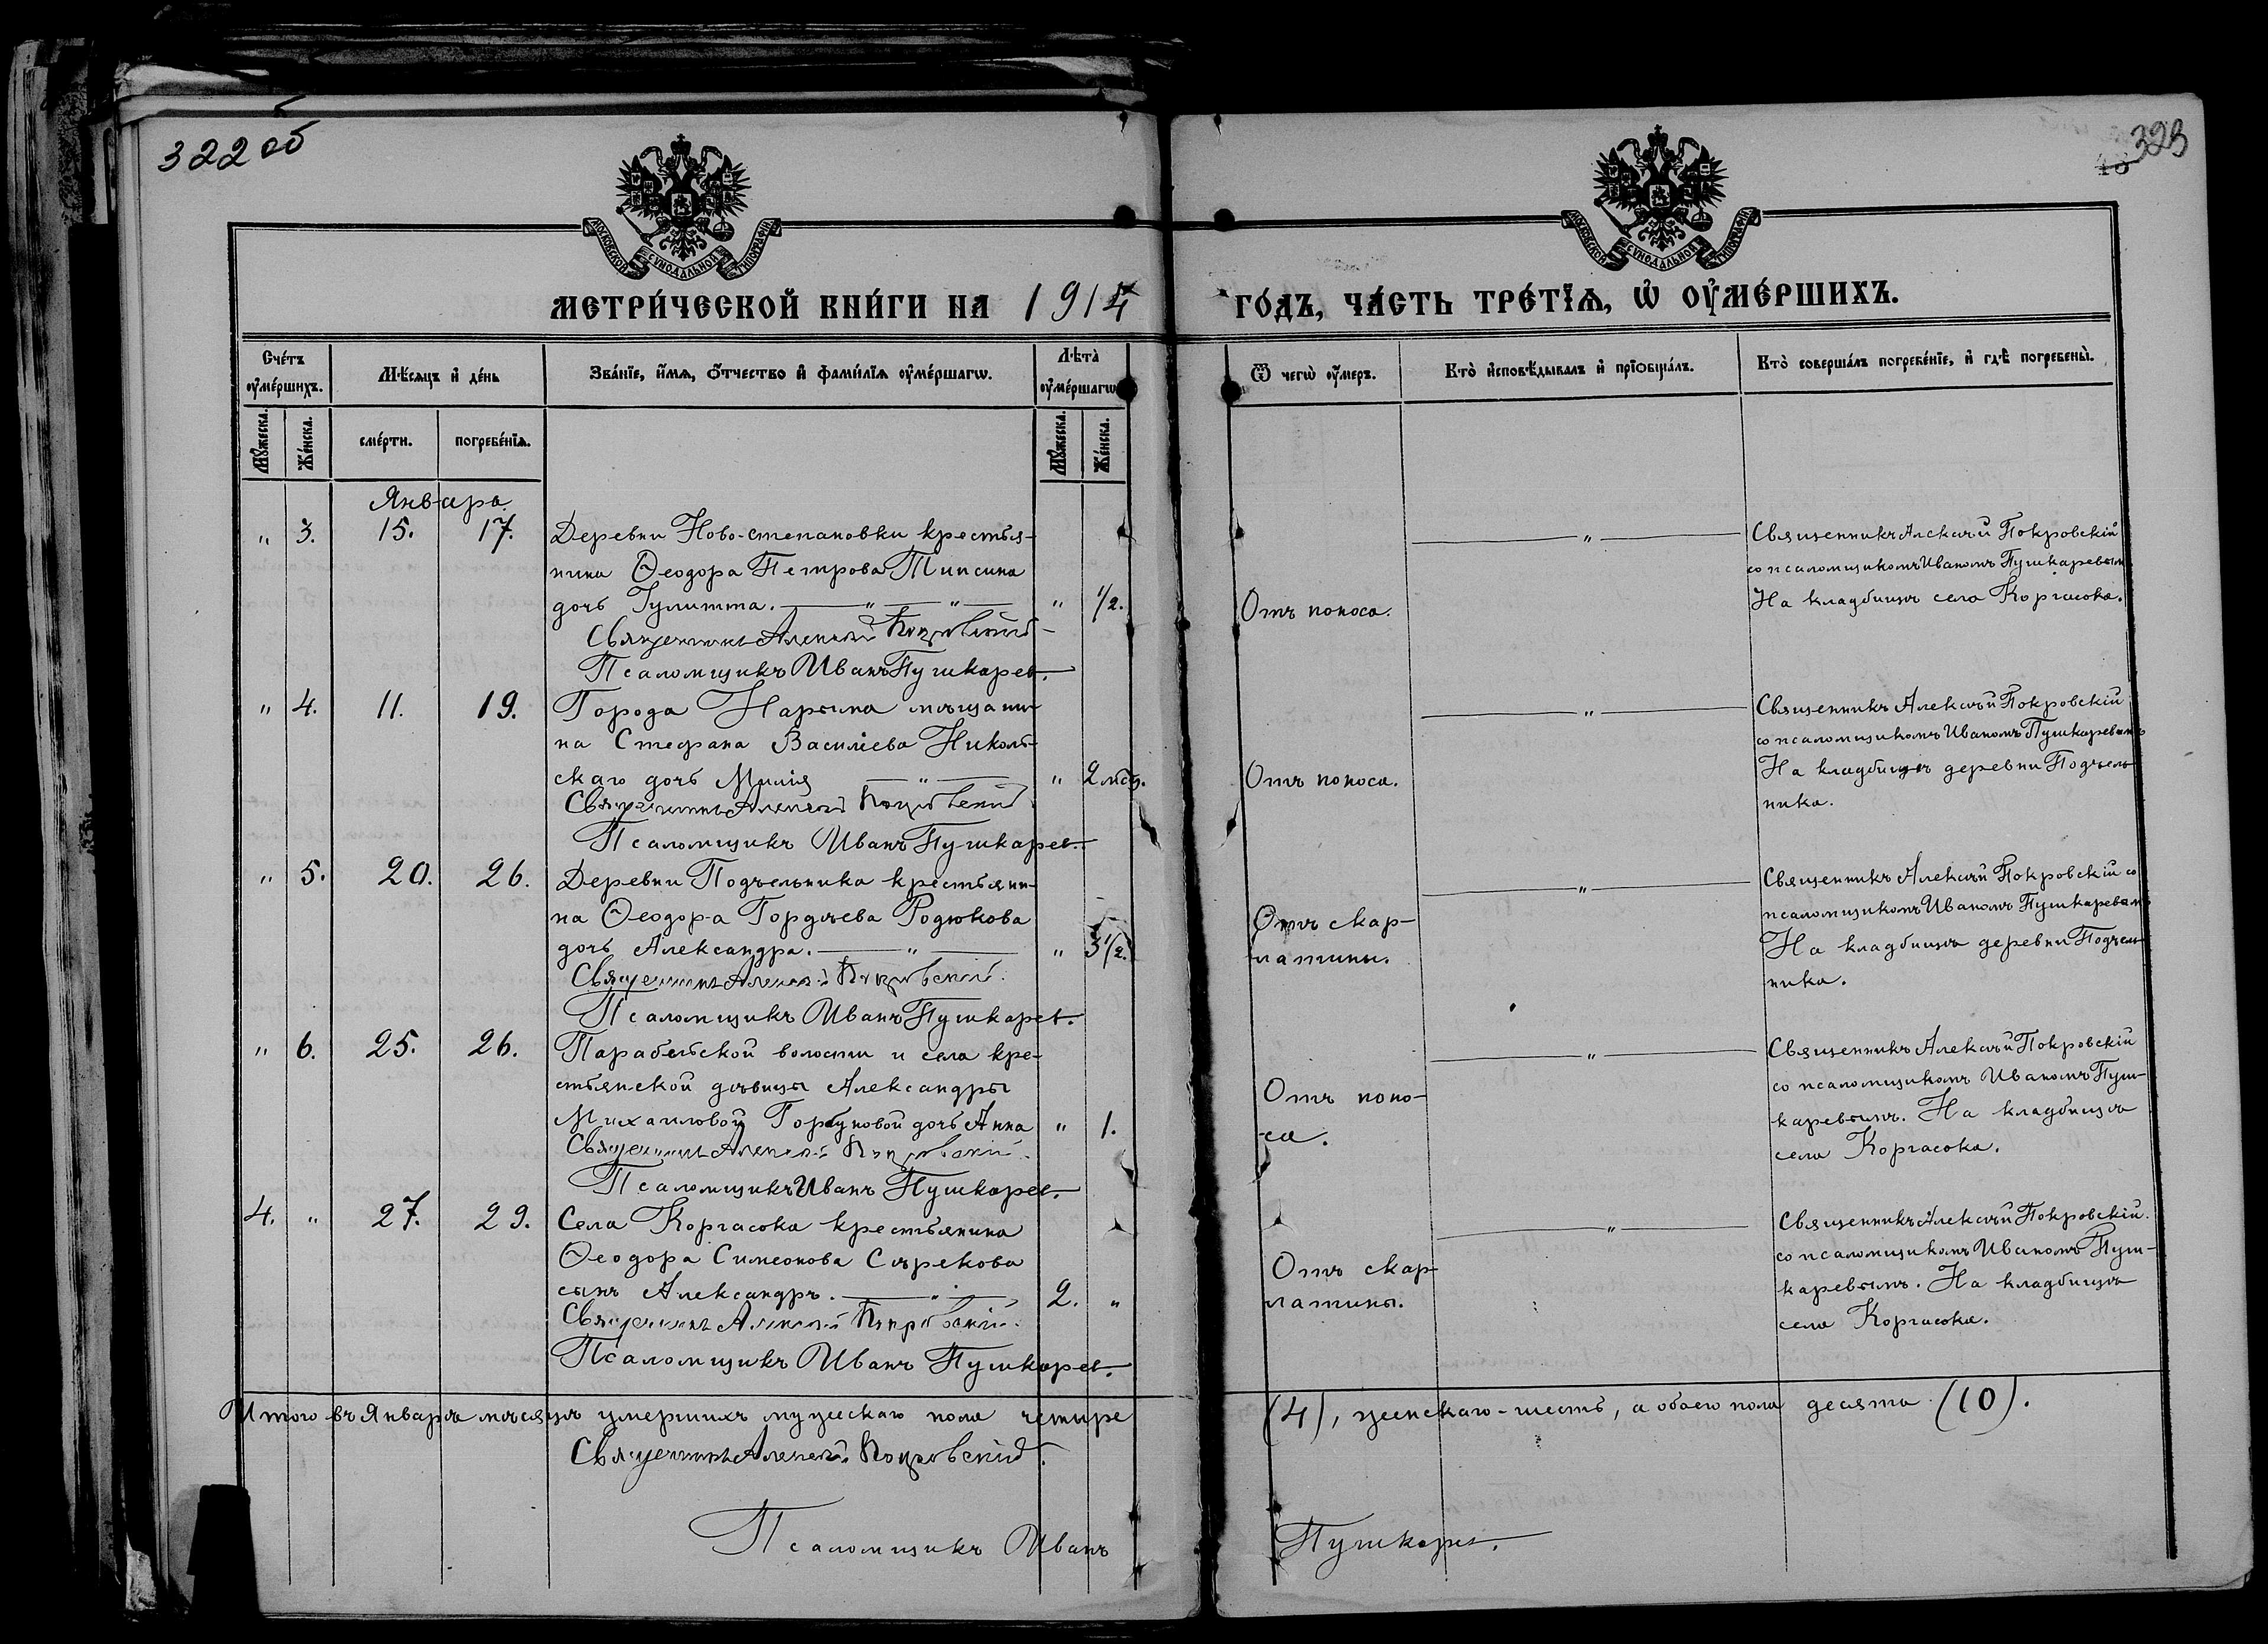 322 об
323
МОСКОВСКОЙ СУНОДАЛЬНОЙ ТИПОГРАФІИ
МОСКОВСКОЙ СУНОДАЛЬНОЙ ТИПОГРАФІИ
МЕТРИ́ЧЕСКОЙ КНИ́ГИ НА 1914 ГО́ДЪ, ЧА́СТЬ ТРЕ́ТЇѦ, Ѡ҆ ОУ҆МЕ́РШИХЪ.
Сче́тъ оу҆ме́ршихъ.
Мѣ́сѧцъ и҆ де́нь
Зва́нїе, и҆́мѧ, ѻ҆́тчество и҆ фами́лїѧ оу҆ме́ршагѡ.
Лѣта̀ оу҆ме́ршагѡ
Ѿ чегѡ̀ оу҆́меръ.
Кто̀ и҆сповѣ́дывалъ и҆ прїѻбща́лъ.
Кто̀ соверша́лъ погребе́нїе, и҆ гдѣ̀ погребены̀.
Мꙋ́жеска.
Же́нска.
сме́рти.
погребе́нїѧ.
Мꙋ́жеска.
Же́нска.
Января.
" 3. 15. 17. Деревни Ново-степановки крестья-
нина Ѳеодора Петрова Типсина
дочь Іулитта. " " " 1/2.
Священникъ Алексѣй Покровскій
Псаломщикъ Иванъ Пушкарев.
Отъ поноса.
"
Священникъ Алексѣй Покровскій
со псаломщикомъ Иваномъ Пушкаревым
На кладбищѣ села Коргасока.
" 4. 11. 19. Города Нарыма мѣщани-
на Стефана Василіева Николь-
скаго дочь Милія " " 2 мѣс.
Священникъ Алексѣй Покровскій
Псаломщикъ Иванъ Пушкарев.
Отъ поноса.
"
Священникъ Алексѣй Покровскій
со псаломщикомъ Иваномъ Пушкаревымъ
На кладбищѣ деревни Подъель-
ника.
" 5. 20. 26. Деревни Подъельника крестьяни-
на Ѳеодора Гордѣева Родюкова
дочь Александра. " " 3 1/2.
Священникъ Алексѣй Покровскій.
Псаломщикъ Иванъ Пушкарев.
Отъ скар-
латины.
"
Священникъ Алексѣй Покровскій со
псаломщикомъ Иваномъ Пушкаревым
На кладбищѣ деревни Подъель-
ника.
" 6. 25. 26. Парабельской волости и села кре-
стьянской дѣвицы Александры
Михаиловой Горбуновой дочь Анна " 1.
Священникъ Алексѣй Покровскій.
Псаломщикъ Иванъ Пушкарев.
Отъ поно-
са.
"
Священникъ Алексѣй Покровскій
со псаломщикомъ Иваномъ Пуш-
каревымъ. На кладбищѣ
села Коргасока.
4. " 27. 29. Села Коргасока крестьянина
Ѳеодора Симеонова Сѣрекова
сынъ Александръ. " 2. "
Священникъ Алексѣй Покровскій.
Псаломщикъ Иванъ Пушкарев.
Отъ скар-
латины.
"
Священникъ Алексѣй Покровскій.
со псаломщикомъ Иваномъ Пуш-
каревымъ. На кладбищѣ
села Коргасока.
Итого въ Январѣ мѣсяцѣ умершихъ мужескаго пола четыре (4), женскаго-шесть, а обоего пола десять (10).
Священникъ Алексѣй Покровскій.
Псаломщикъ Иванъ Пушкарев.